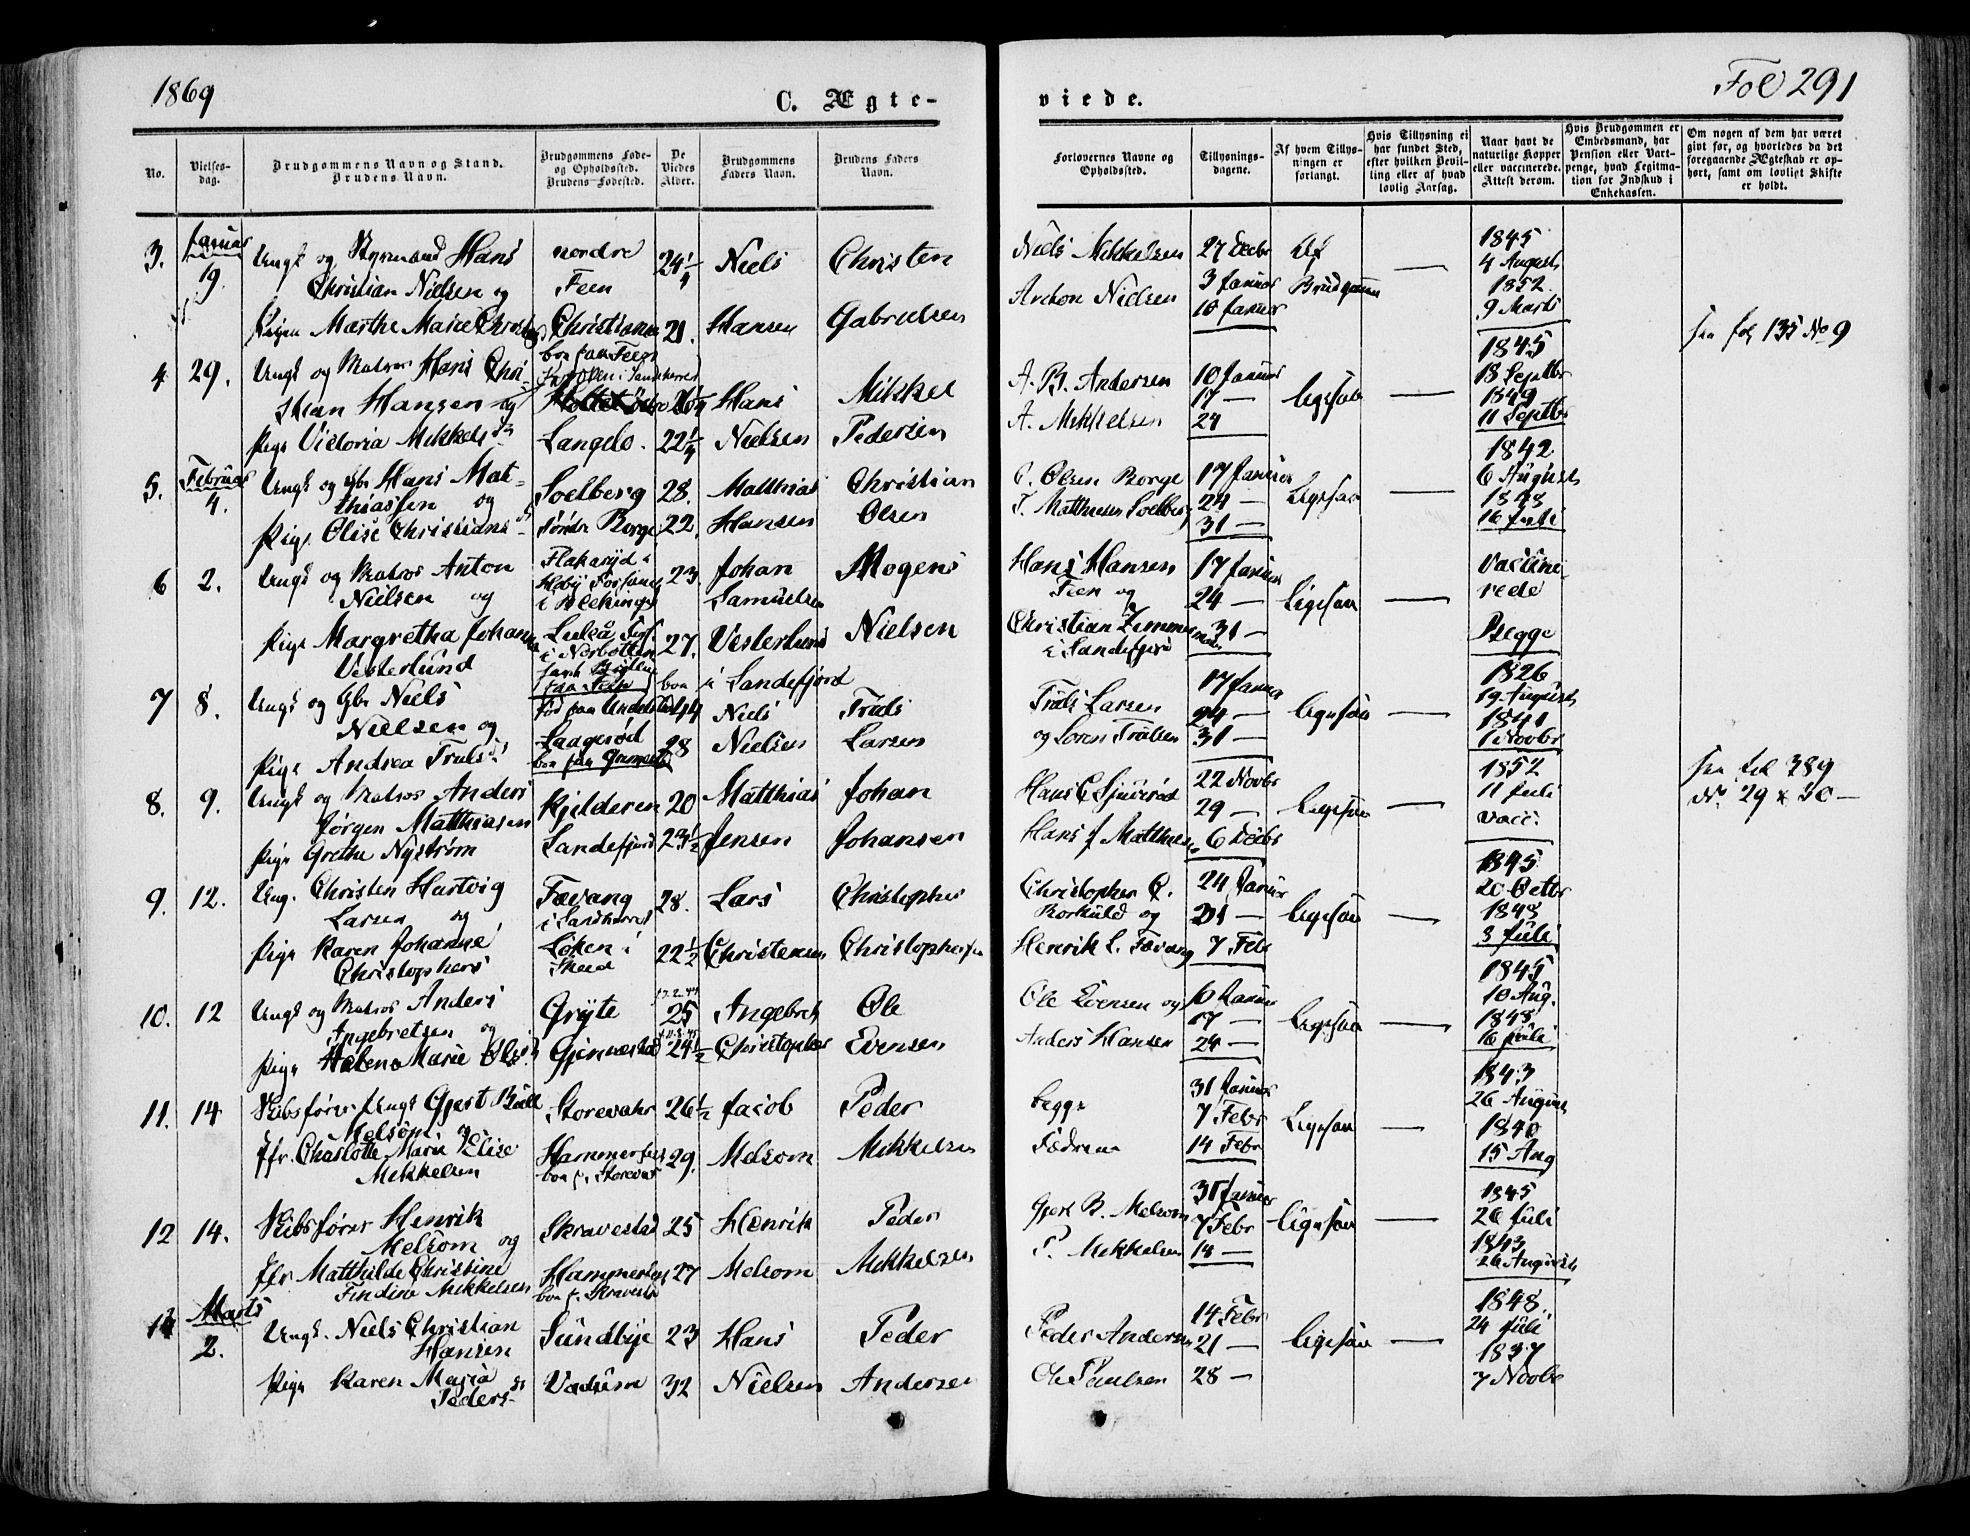 1869
C. Ægte-
viede.
Fol 291
No.
Vielses-
dag.
Brudgommens Navn og Stand.
Brudens Navn.
Brudgommens Føde-
og Opholdssted.
Brudens Fødested.
De
Viedes
Alder.
Brudgommens
Faders Navn.
Brudens Faders
Navn.
Forlovernes Navne og
Opholdssted.
Tillysnings-
dagene.
Af hvem Tillys-
ningen er
forlangt.
Hvis Tillysning ei
har fundet Sted,
efter hvilken Bevil-
ling eller af hvad
lovlig Aarsag.
Naar havt de
naturlige Kopper
eller vaccinerede.
Attest derom.
Hvis Brudgommen er
Embedsmand, har
Pension eller Vart-
penge, hvad Legitma-
tion for Indskud i
Enkekassen.
Om nogen af dem har været
givt før, og hvorledes da det
foregaaende Ægteskab er op-
hørt, samt om lovligt Skifte
er holdt.
3. Januar 19. Ungk og Styrmand Hans nordre 24¼ Niels Christen Niels Mikkelsen 27 Decbr Af — 1845
Christian Nielsen og Feen Anthon Nielsen 3 Januar Brudgommen 4 August
1852
Pigen Marthe Marie Christiane 21. Hansen Gabrielsen 10 Januar 9 Marts
boe paa Feen
4. 29. Ungk og Matros Hans Chri- i Sandeherred A. B. Andersen 10 Januar ligesaa — 1845 fol 135 No 9
stian Hansen og 26¼ Hans Mikkel 17 — 18 Septbr
1849
Pige Victoria Mikkelsd Langelo. 22¼ Nielsen Pedersen A. Mikkelsen 24 11 Septbr
5. Februar 4. Ungk og Gbr Hans Mat- Soelberg 28. Matthias Christian C. Olsen Borge 17 Januar Ligesaa — 1842
thiassen og 24 — 6 August
1848
Pige Olise Christians Søndre Borge 22. Hansen Olsen T. Matthiesen Soelberg 31 — 16 Juli
6 2. Ungk og Matros Anton 23. Johan Mogens Hans Hansen 17 Januar Ligesaa — Vaccine-
Nielsen og i Blekinge Samuelsen Feen og 24 — rede
Pige Margretha Johanna Luleå 27. Vesterlund Nielsen Christian Zimmer 31 — Begge
Vesterlund i Norbotten i Sandefjord
boe i Sandefjord
7 8. Ungk og Gbr Niels født paa 44 Niels Truls Truls Larsen 17 Januar ligesaa — 1826
Nielsen og 24 — 19 August
1841
Pige Andrea Truls Laagerød 28 Nielsen Larsen og Soren Trulsen 31 — 1 Novbr
8. 9. Ungk og Matros Anders Kjelderen 20 Matthias Johan Hans C Sjuverød 22 Novbr Ligesaa — 1852 fol 389
Jørgen Matthiasen 29 — 11 Juli No 29 & 30 —
Pige Grethe Nystrøm Sandefjord 23½ Jensen Johansen Hans J. Matthies 6 Decbr vacc:
9. 12. Ung. Christen Hartvig Fevang 28. Lars Christopher Christopher C. 24 Januar ligesaa — 1845
Larsen og i Sandeherred Borkuld og 31 — 20 Octbr
1848
Pige Karen Johanne Løken i 22½ Christensen Christophersen Henrik L. Fevang 7 Feb 3 Juli
Christophers
10. 12 Ungk og Matros Anders Gryte 25 Angebret Ole Ole Evensen og 10 Januar ligesaa — 1845
Ingebretsen og 17 — 10 Aug.
1848
Pige Helene Marie Olsd Gjennestad 24½ Christopher Evensen Anders Hansen 24 — 16 Juli
11. 14 Skibsfører Ungk Gjert Bull Storevahr 26½ Jacob Peder begge 31 Januar Ligesaa — 1843
Melsom og 7 Febr 26 August
1840
Jfr. Charlotte Marie Elise Hammerfest 29. Melsom Mikkelsen Fædrene 14 Febr 15 Aug
Mikkelsen
12 14. Skibsfører Henrik Skravestad 25 Henrik Peder Gjert B. Melsom 31 Januar ligesaa — 1845
Melsom og 7 Febr 26 Juli
1843
Jfr Matthilde Christine Hammerfest 27 Melsom Mikkelsen P. Mikkelsen 14 — 26 August
Findine Mikkelsen boe p. Skravestad
Marts
2. Ungk. Niels Christian Sundbye 23 Hans Peder Peder Andersen 14 Febr ligesaa — 1848.
Hansen 21 — 24 Juli
1837
Pige Karen Maria 32 Nielsen Andersen Ole Paulsen 28 — 7 Novbr
Peders